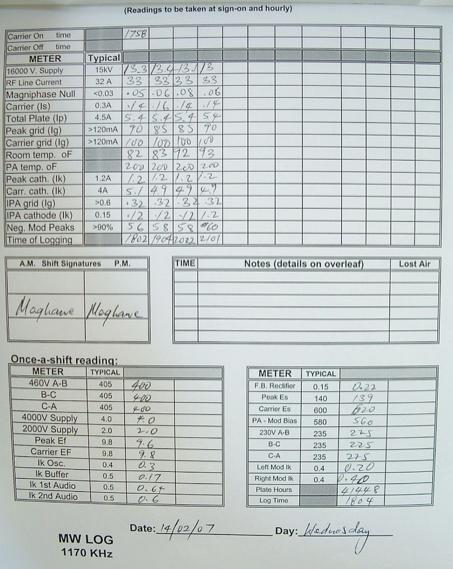 (Readings to be taken at sign-on and hourly)
Carrier On time 1758
Carrier Off time
METER Typical
16000 V. Supply 15kV 13.3 13.4 13.1 13
RF Line Current 32 A 33 33 33 33
Magniphase Null <0.03 .05 .06 .08 .06
Carrier (Is) 0.3A .14 .16 .14 .14
Total Plate (Ip) 4.5A 5.4 5.4 5.4 5.4
Peak grid (Ig) >120mA 90 85 85 90
Carrier grid (Ig) >120mA 100 100 100 100
Room temp. oF 82 83 92 93
PA temp. oF 200 200 200 200
Peak cath. (Ik) 1.2A 1.2 1.2 1.2 1.2
Carr. cath. (Ik) 4A 5.1 4.9 4.9 4.9
IPA grid (Ig) >0.6 .32 .32 .32 .32
IPA cathode (Ik) 0.15 .12 .12 .12 1.2
Neg. Mod Peaks >90% 56 58 58 60
Time of Logging 1802 1904 2002 2101
A.M. Shift Signatures P.M.
Maghane Maghane
TIME Notes (details on overleaf) Lost Air
Once-a-shift reading:
METER TYPICAL
460V A-B 405 400
B-C 405 400
C-A 405 400
4000V Supply 4.0 4.0
2000V Supply 2.0 2.0
Peak Ef 9.8 9.6
Carrier EF 9.8 9.8
Ik Osc. 0.4 0.3
Ik Buffer 0.5 0.17
Ik 1st Audio 0.5 0.64
Ik 2nd Audio 0.5 0.6
METER TYPICAL
F.B. Rectifier 0.15 0.22
Peak Es 140 139
Carrier Es 600 620
PA - Mod Bias 580 560
230V A-B 235 225
B-C 235 225
C-A 235 225
Left Mod Ik 0.4 0.20
Right Mod Ik 0.4 0.40
Plate Hours 41448
Log Time 1804
Date: 14/02/07 Day: Wednesday
MW LOG
1170 KHz